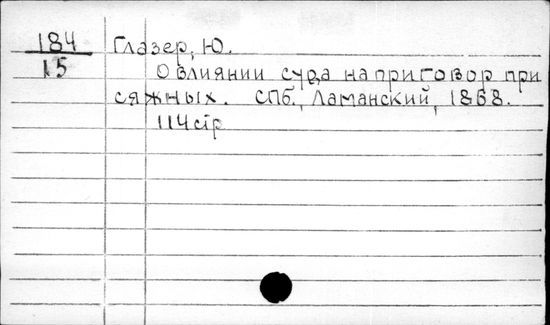 184 Глазер, Ю.
15 О влиянии суда на приговор при
сяжных. СПб., Ламанский, 1868.
114 стр